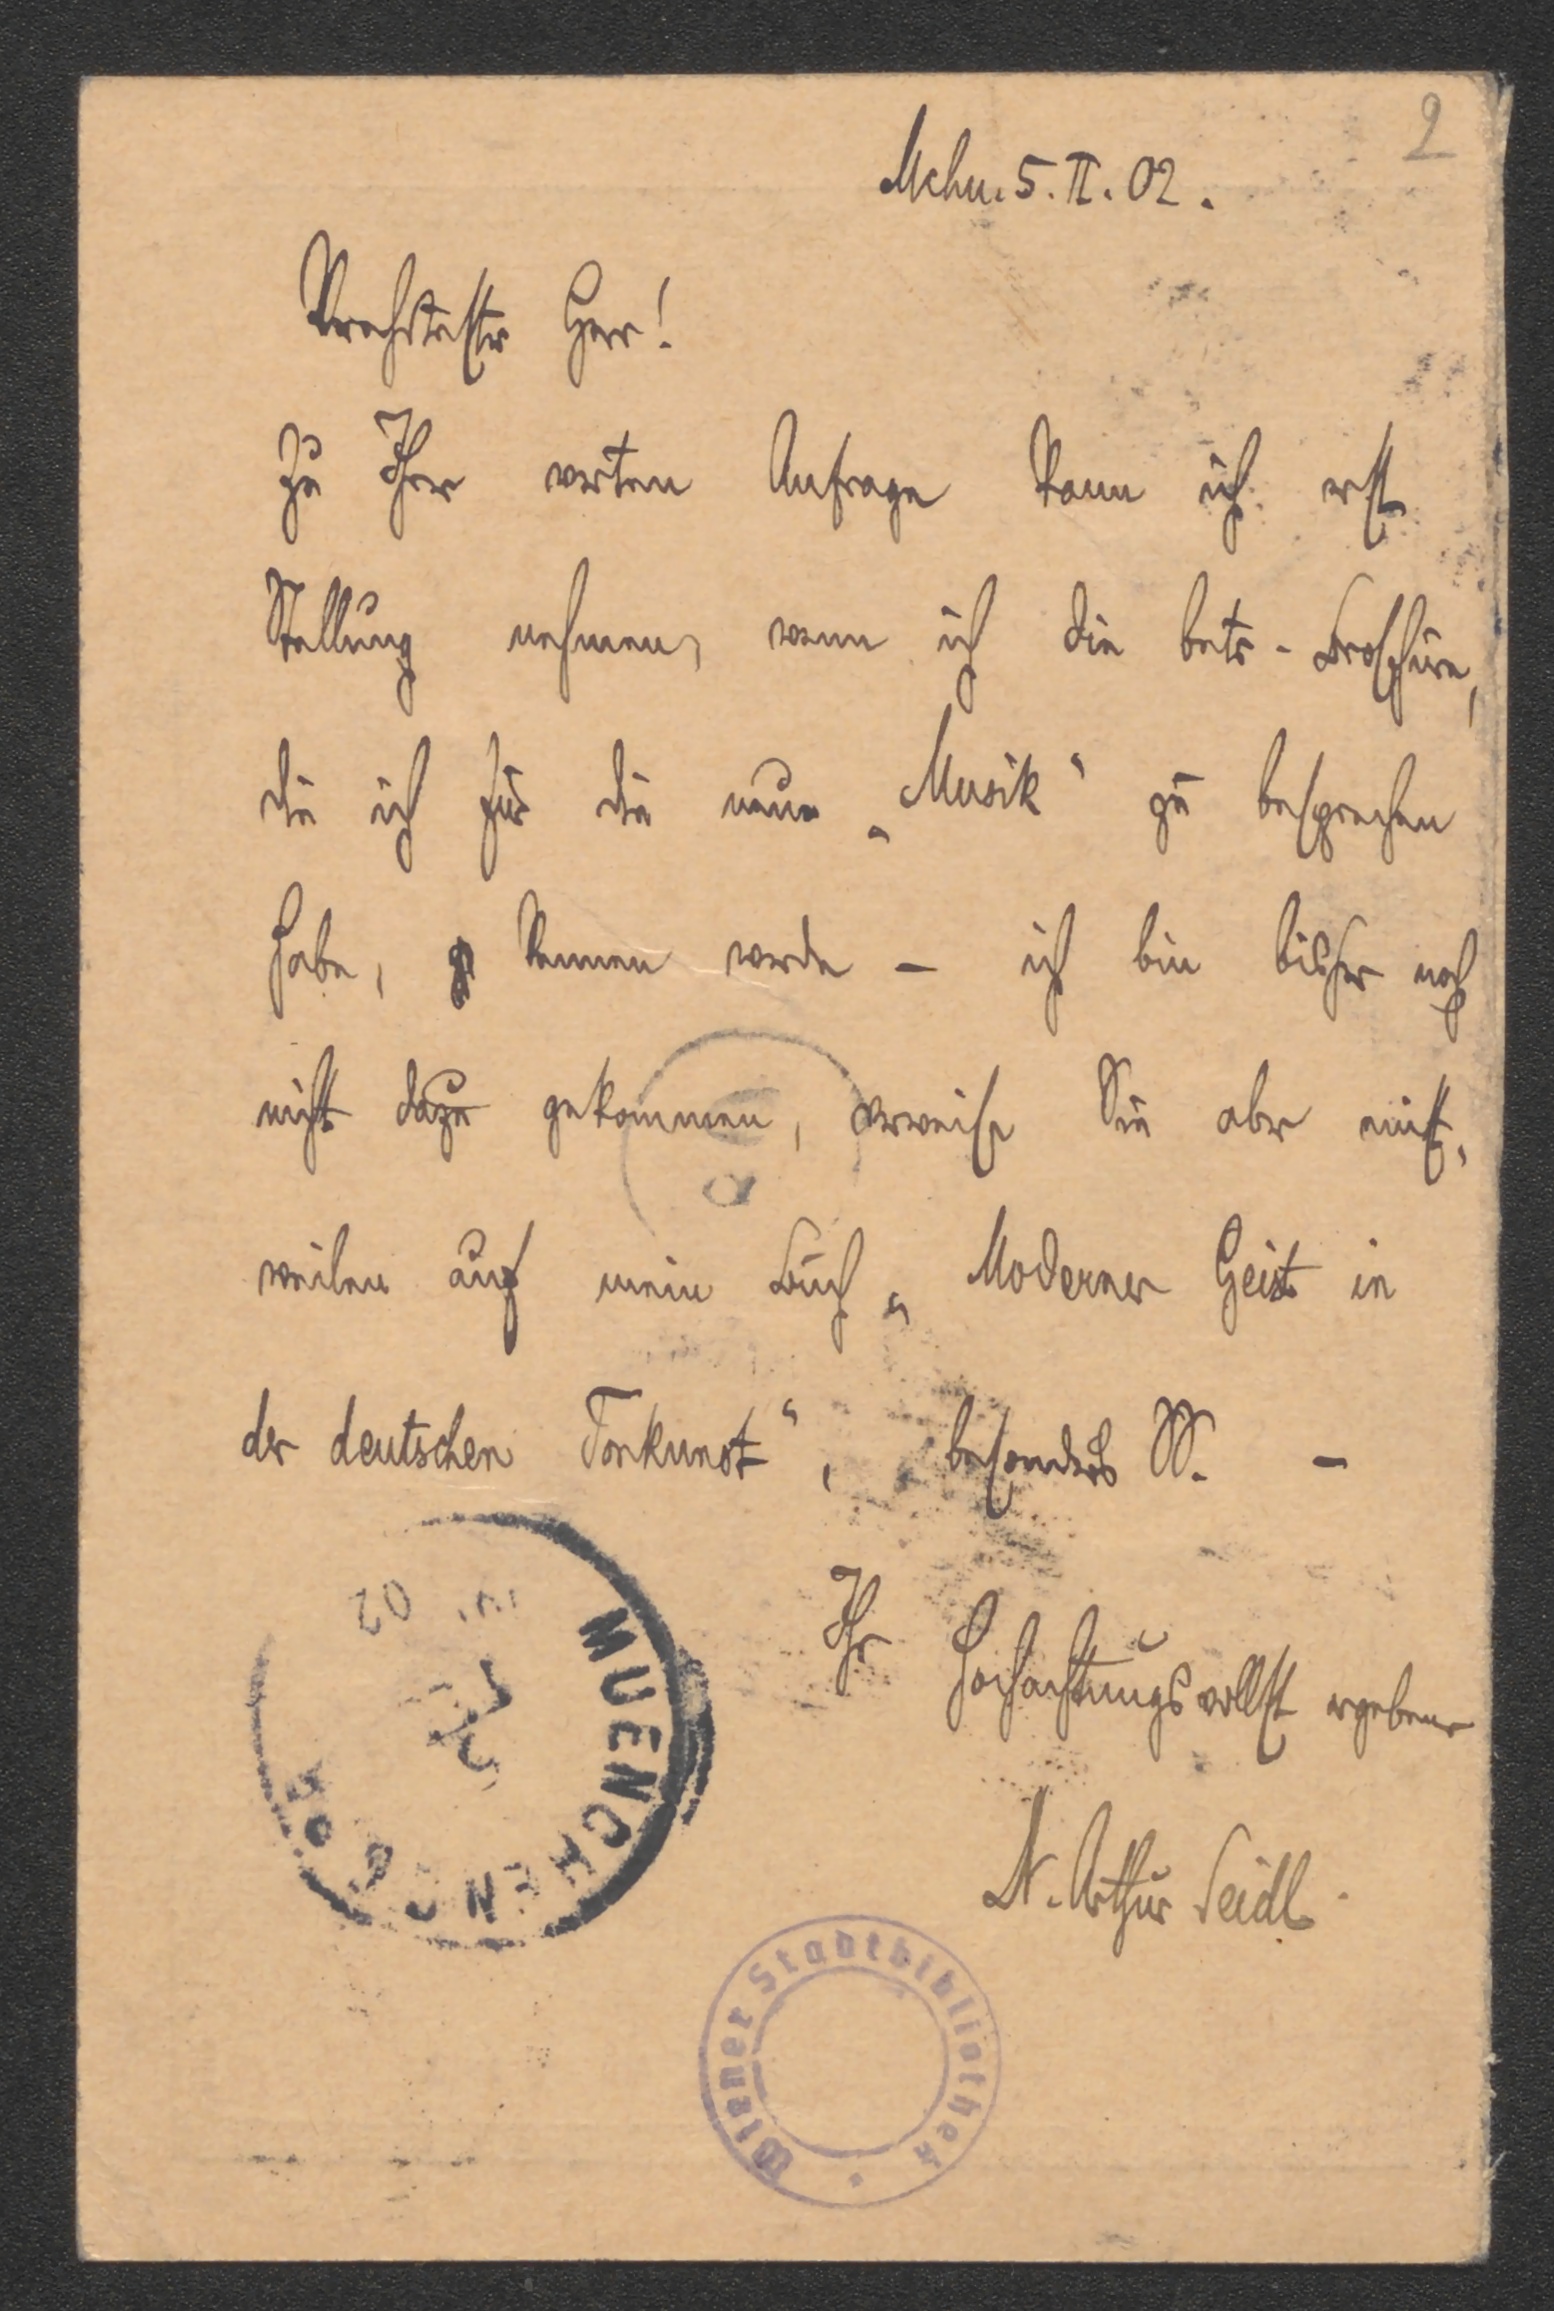 2
Mchn. 5. II. 02.
Verehrtester Herr!
Zu Ihrer werten Anfrage kann ich erst
Stellung nehmen, wenn ich die betr. Broschüre,
die ich für die neue „Musik“ zu besprechen
habe, kennen werde – ich bin bisher noch
nicht dazu gekommen, verweise Sie aber einst-
weilen auf mein Buch „Moderner Geist in
der deutschen Tonkunst“, besonders SS. –
Ihr hochachtungsvollst ergebener
Dr. Arthur Seidl.
MUENCHEN
02
Wiener Stadtbibliothek